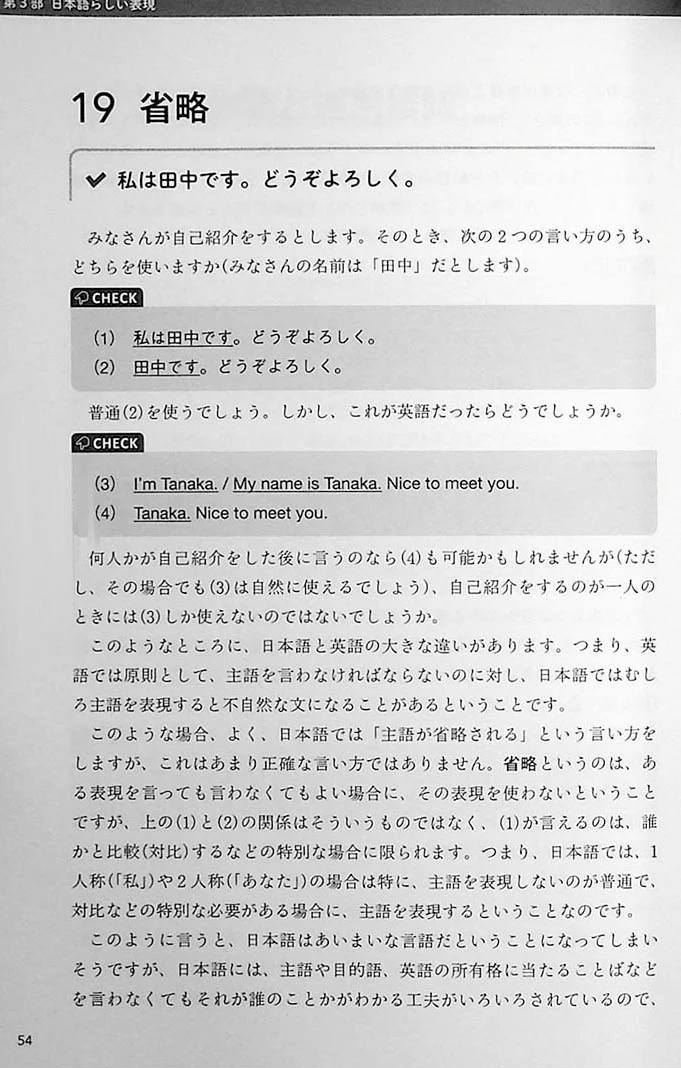 第3部 日本語らしい表現
19 省略
私は田中です。どうぞよろしく。
みなさんが自己紹介をするとします。そのとき、次の2つの言い方のうち、
どちらを使いますか(みなさんの名前は「田中」だとします)。
CHECK
(1) 私は田中です。どうぞよろしく。
(2) 田中です。どうぞよろしく。
普通(2)を使うでしょう。しかし、これが英語だったらどうでしょうか。
CHECK
(3) I'm Tanaka. / My name is Tanaka. Nice to meet you.
(4) Tanaka. Nice to meet you.
何人かが自己紹介をした後に言うのなら(4)も可能かもしれませんが(ただ
し、その場合でも(3)は自然に使えるでしょう)、自己紹介をするのが一人の
ときには(3)しか使えないのではないでしょうか。
このようなところに、日本語と英語の大きな違いがあります。つまり、英
語では原則として、主語を言わなければならないのに対し、日本語ではむし
ろ主語を表現すると不自然な文になることがあるということです。
このような場合、よく、日本語では「主語が省略される」という言い方を
しますが、これはあまり正確な言い方ではありません。省略というのは、あ
る表現を言っても言わなくてもよい場合に、その表現を使わないということ
ですが、上の(1)と(2)の関係はそういうものではなく、(1)が言えるのは、誰
かと比較(対比)するなどの特別な場合に限られます。つまり、日本語では、1
人称(「私」)や2人称(「あなた」)の場合は特に、主語を表現しないのが普通で、
対比などの特別な必要がある場合に、主語を表現するということなのです。
このように言うと、日本語はあいまいな言語だということになってしまい
そうですが、日本語には、主語や目的語、英語の所有格に当たることばなど
を言わなくてもそれが誰のことかがわかる工夫がいろいろされているので、
54